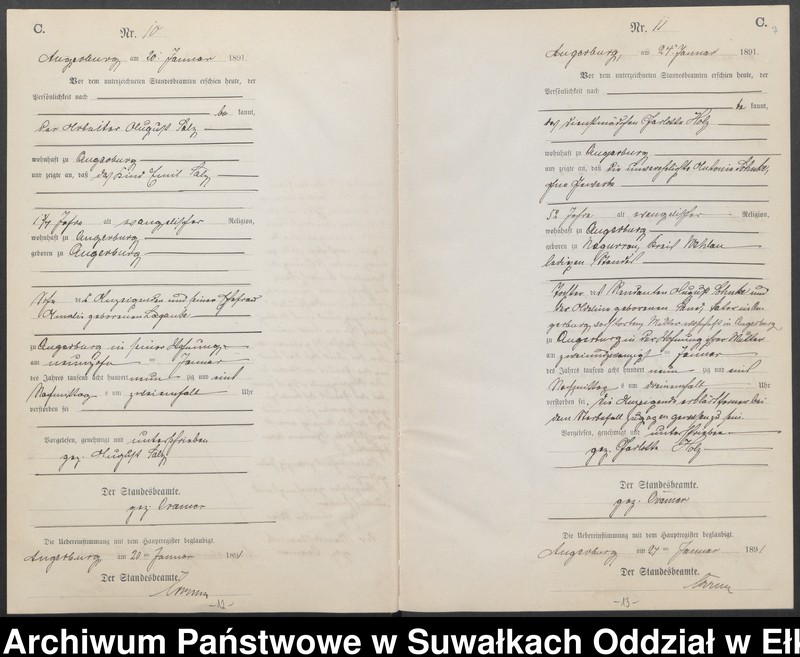 C.
Nr. 10
Angerburg am 20 ten Januar 1891.
Vor dem unterzeichneten Standesbeamten erschien heute, der
Persönlichkeit nach
be kannt,
der Arbeiter August Salz
wohnhaft zu Angerburg
und zeigte an, daß das Kind Emil Salz
1 3/4 Jahre alt evangelischer Religion,
wohnhaft zu Angerburg
geboren zu Angerburg
Sohn des Anzeigenden und seiner Ehefrau
Amalie geborenen
zu Angerburg in seiner Wohnung
am neunzehn ten Januar
des Jahres tausend acht hundert neun zig und eins
Nachmittag s um zweieinhalb Uhr
verstorben sei
Vorgelesen, genehmigt und unterschrieben
gez. August Salz
Der Standesbeamte.
gez. Cramer
Die Uebereinstimmung mit dem Hauptregister beglaubigt.
Angerburg am 20 ten Januar 1891
Der Standesbeamte.
Cramer
-12-
C.
7
Nr. 11
Angerburg, am 24 ten Januar 1891.
Vor dem unterzeichneten Standesbeamten erschien heute, der
Persönlichkeit nach
be kannt,
das Dienstmädchen Charlotte Holz
wohnhaft zu Angerburg
und zeigte an, daß die unverehelichte Antonie
ohne Gewerbe
52 Jahre alt evangelischer Religion,
wohnhaft zu Angerburg
geboren zu Kreis Wehlau
ledigen Standes
Tochter des Rendanten August und
der geborenen Vater in An-
gerburg verstorben, Mutter wohnhaft in Angerburg
zu Angerburg in der Wohnung ihrer Mutter
am zweiundzwanzigsten Januar
des Jahres tausend acht hundert neun zig und eins
Nachmittag s um dreieinhalb Uhr
verstorben sei. Die Anzeigende erklärt ferner bei
dem Sterbefall zugegen gewesen zu sein.
Vorgelesen, genehmigt und unterschrieben
gez. Charlotte Holz
Der Standesbeamte.
gez. Cramer
Die Uebereinstimmung mit dem Hauptregister beglaubigt.
Angerburg am 24 ten Januar 1891
Der Standesbeamte.
Cramer
-13-
Archiwum Państwowe w Suwałkach Oddział w Eł